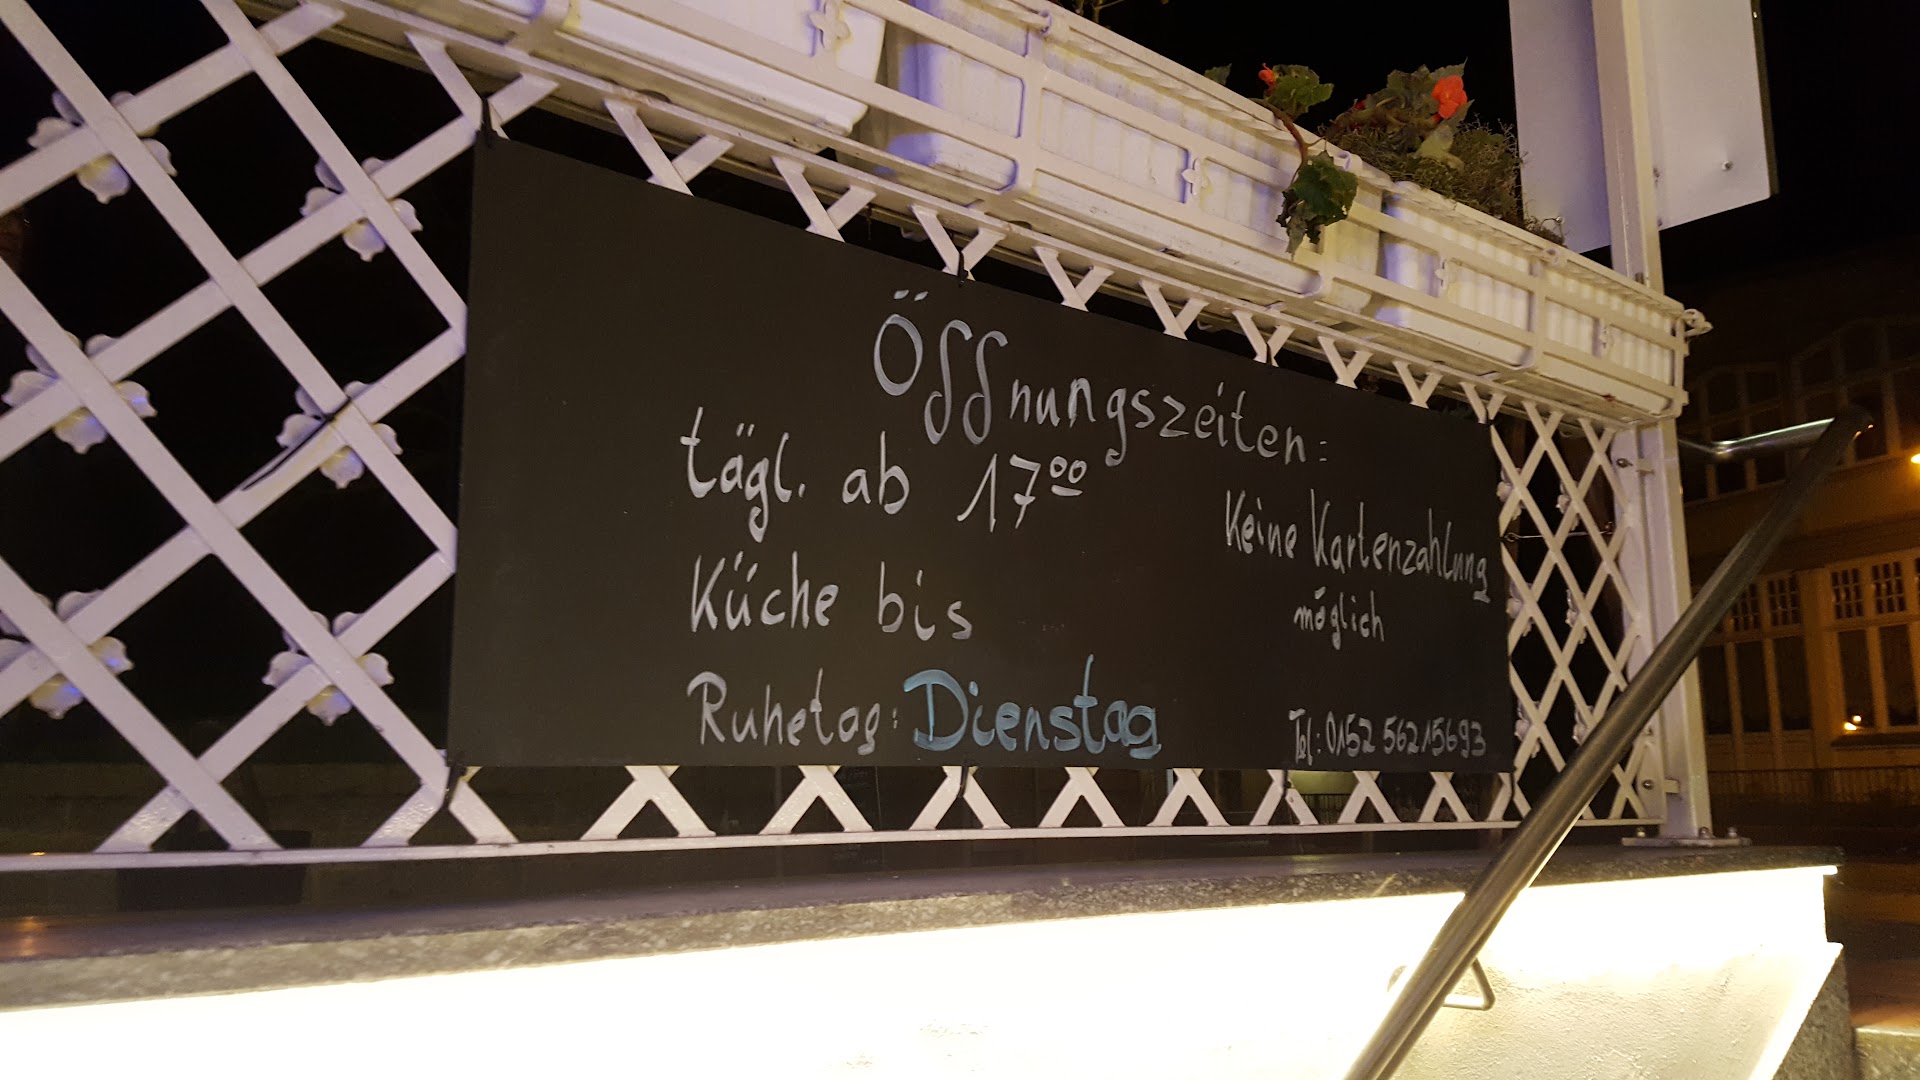 Öffnungszeiten:
tägl. ab 17⁰⁰
Küche bis
Ruhetag: Dienstag
Keine Kartenzahlung
möglich
Tel: 0152 56215693